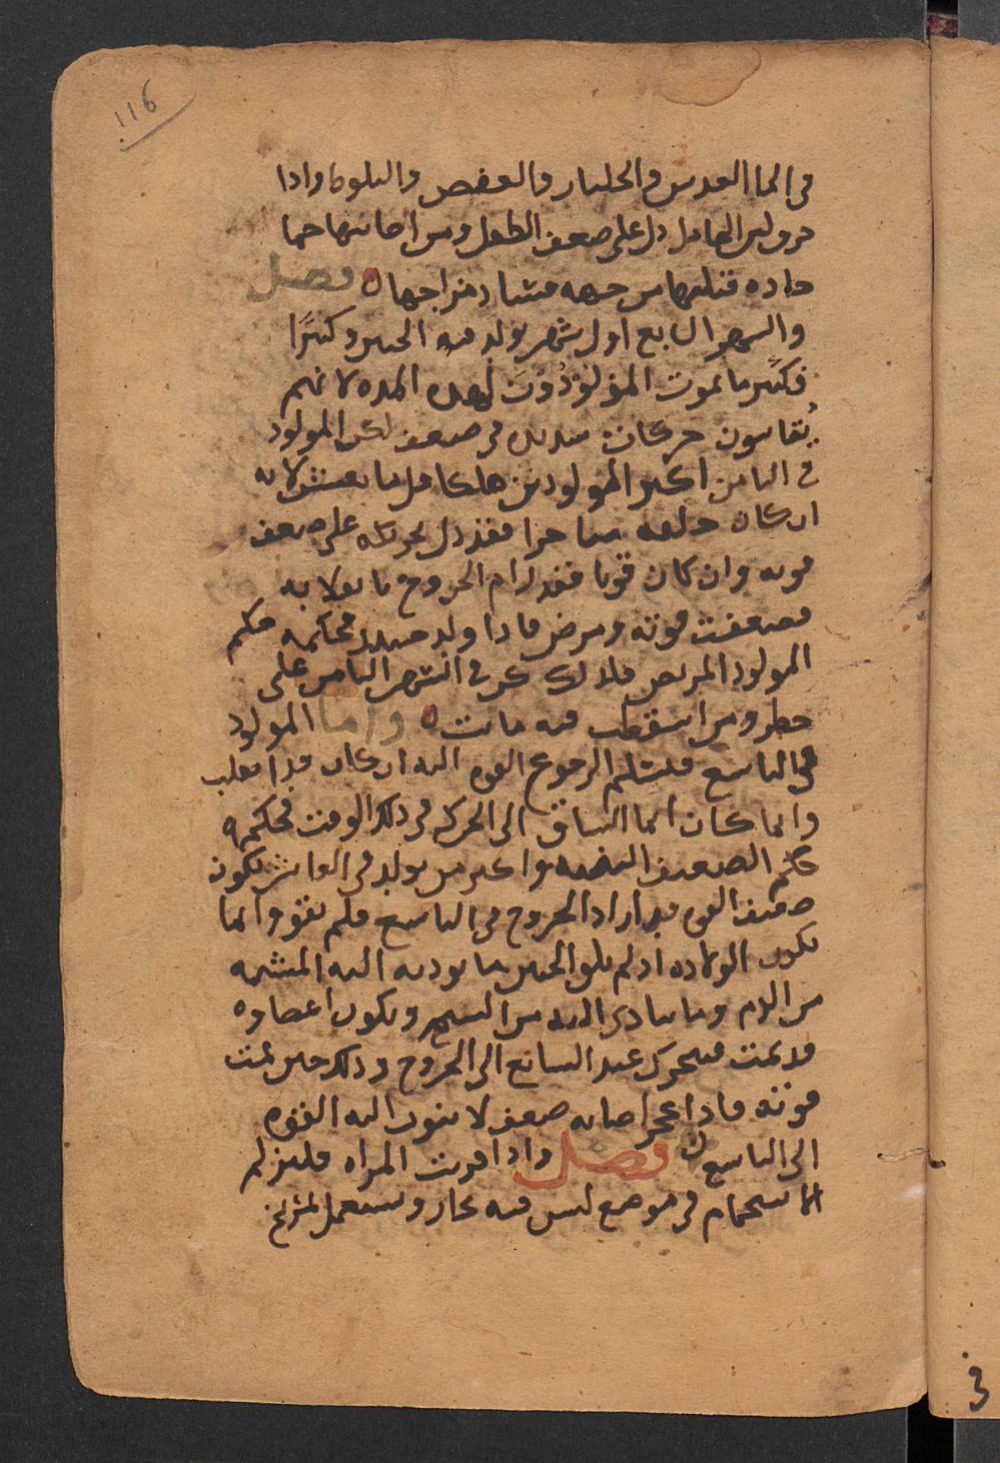 116
في الما العدس والجلنار والعفص والبلوط واذا
درور لبن الحامل دل على ضعف الطفل ومن اصابتها حما
حاده قتلتها من جهه فساد مزاجها ه فصل
والشهر السابع اول شهر يولد فيه الجنين وكثيرًا
فكثير ما يموت المولودون لهذه المده لانهم
يُقاسون حركات شديده في ضعف لكن المولود
في الثامن اكثر المولودين هلكا قل ما يعيش لانه
ان كان خلقه متاخرا فقد دل بحركته على ضعف
قوته وان كان قويا فقد رام الخروج
فضعفت قوته ومرض فاذا ولد حينيذ فحكمه حكم
المولود المريض فلذلك في الشهر الثامن على
خطر ومن اسقطت فيه ماتت ه واما المولود
في التاسع فيسلم لرجوع القوه اليه ان كان قد انقلب
وانما كان انما اشتاق الى الحركه في ذلك الوقت فحكمه
الضعيف البنيه واكثر من يولد في العاشر يكون
ضعيف القوه قد اراد الخروج في التاسع فلم يقو وانما
تكون الولاده اذ لم يكف الجنين ما توديه اليه المشيمه
من الدم وما يتادى اليه من النسيم وتكون اعضاوه
قد تمت فيتحرك عند السابع الى الخروج وذلك حين تمت
قوته فاذا عجز اصابه ضعف لا تثوب اليه القوه
الى التاسع ه فصل واذا قربت المراه فليلزم
الاستحمام في موضع ليس فيه بخار ويستعمل التمريخ
3